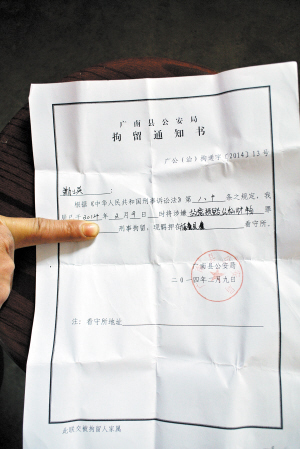 广南县公安局
拘留通知书
广公(治)拘通字〔2014〕13号
根据《中华人民共和国刑事诉讼法》第八十条之规定,我
局已于2014年2月9日 时将涉嫌
刑事拘留,现羁押在 看守所。
广南县公安局
二〇一四年二月九日
注:看守所地址
此联交被拘留人家属